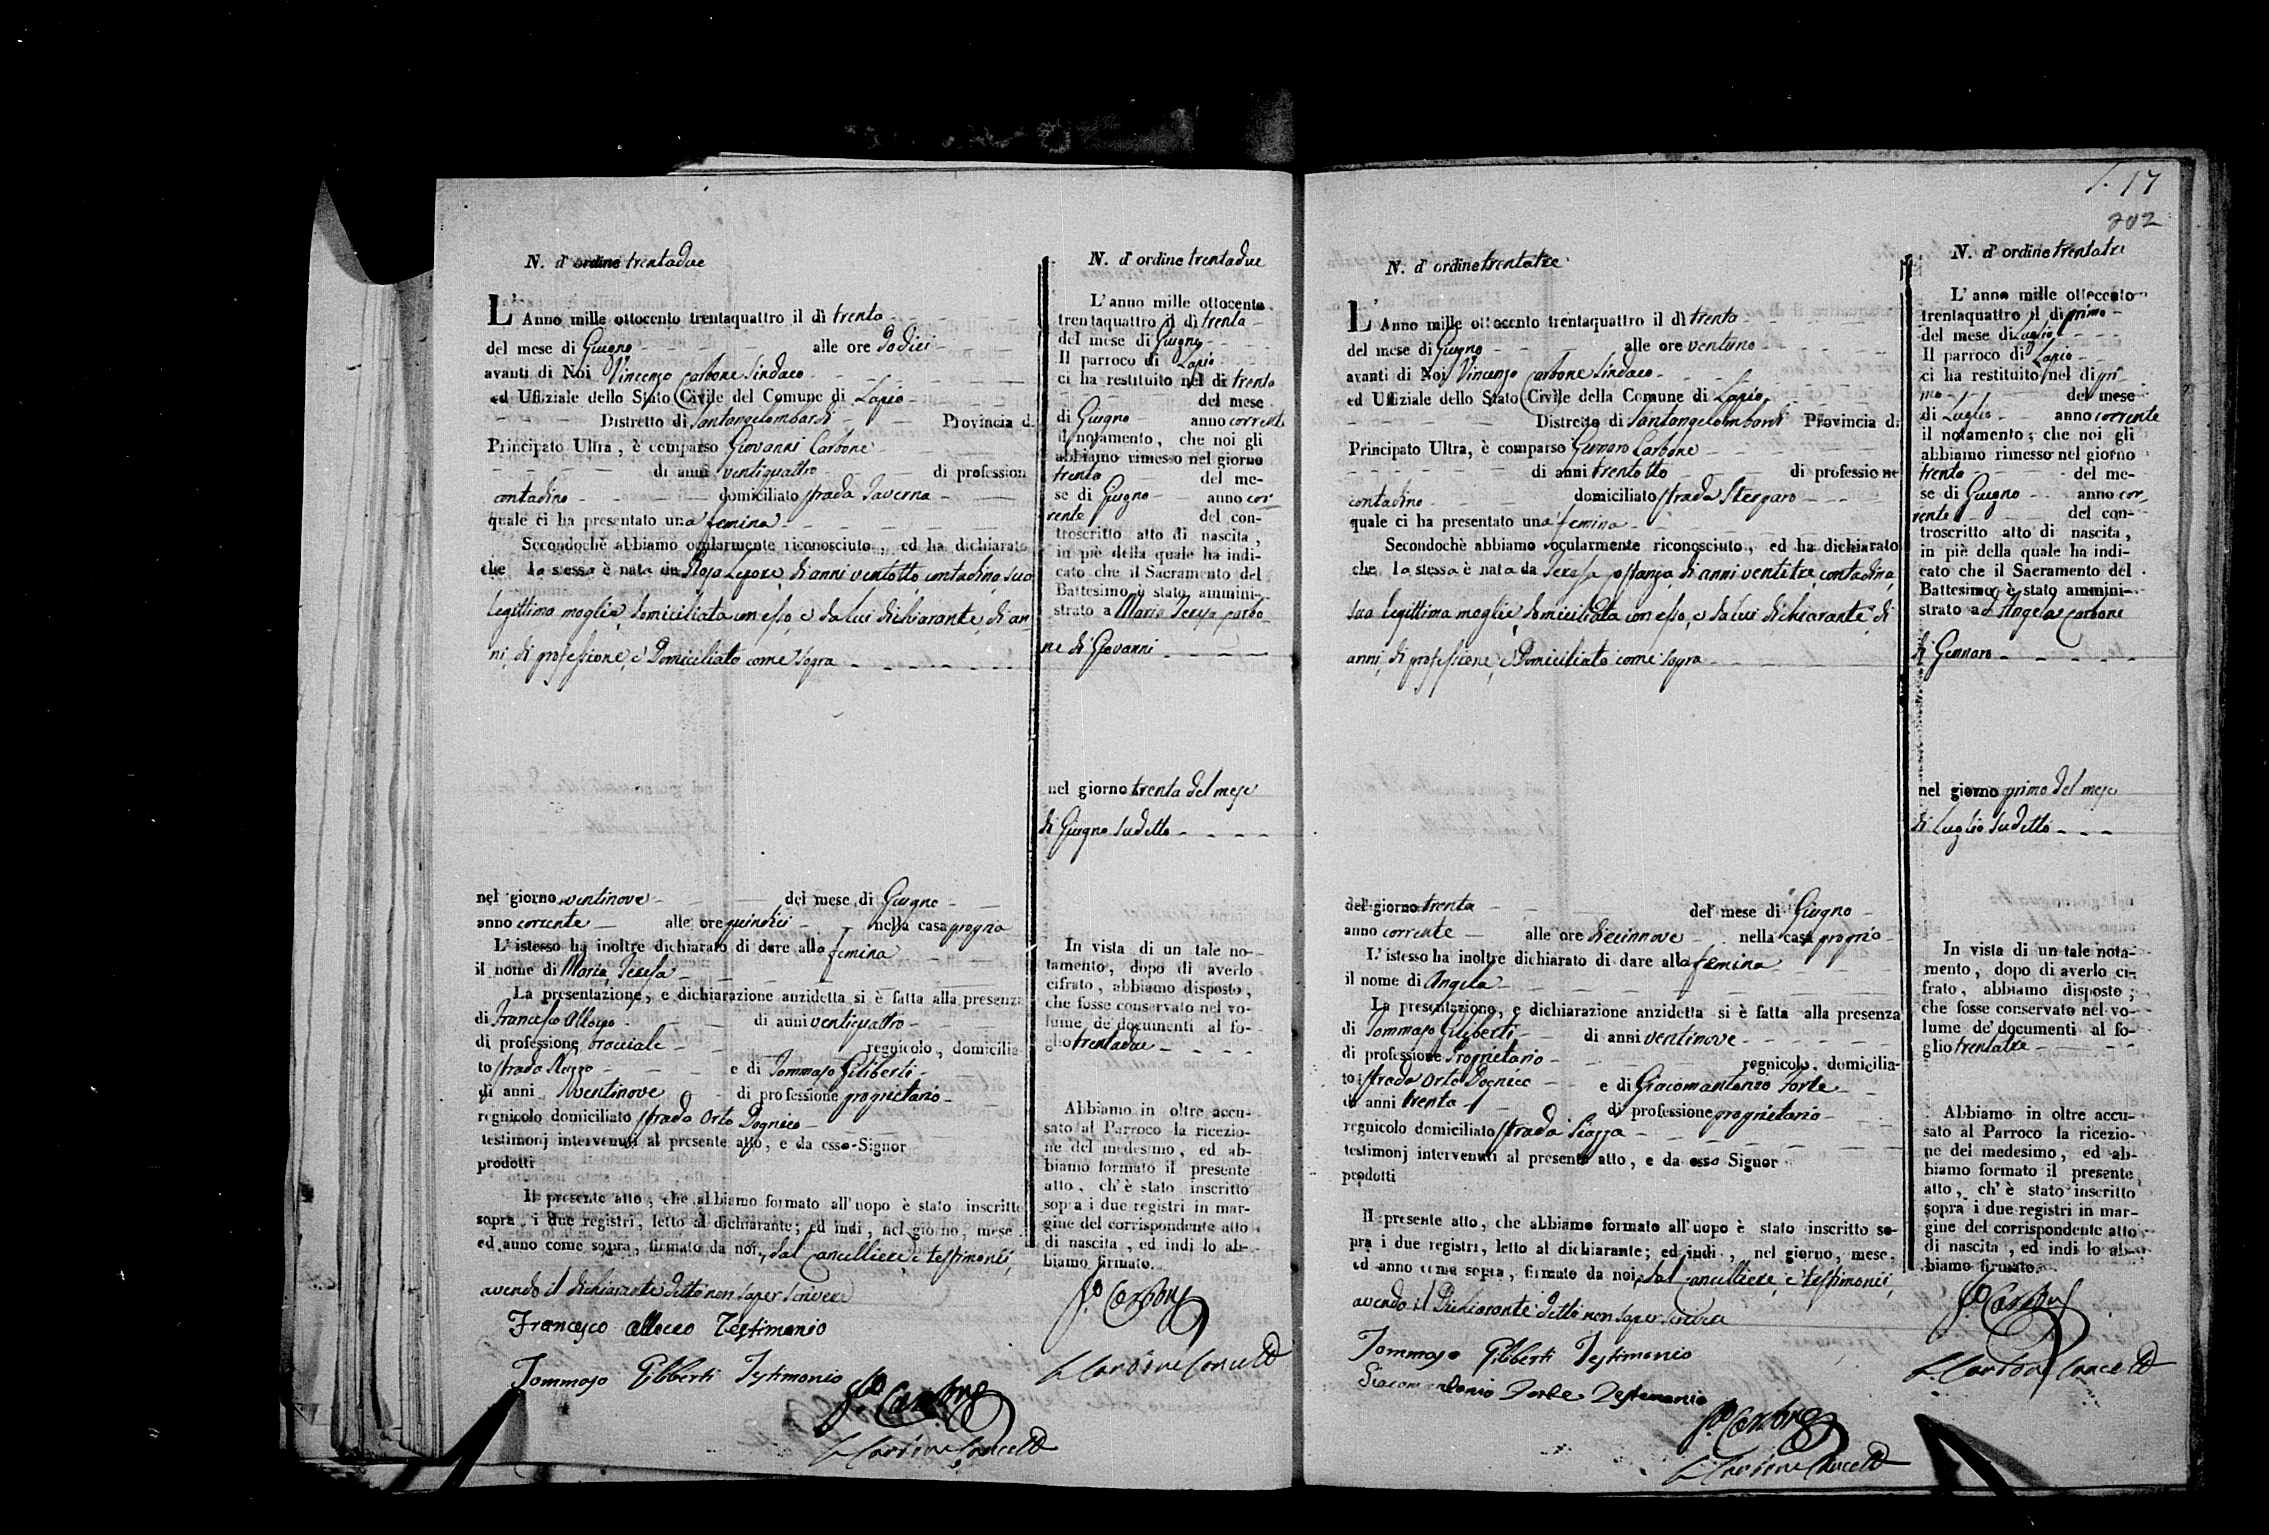 N. d' ordine trentadue
L' Anno mille ottocento trentaquattro il dì trenta
del mese di Giugno alle ore dodici
avanti di Noi Vincenzo Carbone Sindaco
ed Uffiziale dello Stato Civile del Comune di Lapio
Distretto di Santangelombardi Provincia di
Principato Ultra, è comparso Giovanni Carbone
di anni ventiquattro di profession
contadino domiciliato strada Taverna
quale ci ha presentato una femina
Secondochè abbiamo ocularmente riconosciuto, ed ha dichiarato
che la stessa è nata da Rosa Lepore, di anni ventotto contadina, sua
legittima moglie, domiciliata con esso, e da lui dichiarante, di an
ni, di professione, e domiciliato come sopra
nel giorno ventinove del mese di Giugno
anno corrente alle ore quindici nella casa propria
L' istesso ha inoltre dichiarato di dare alla femina
il nome di Maria Teresa
La presentazione, e dichiarazione anzidetta si è fatta alla presenza
di Francesco di anni ventiquattro
di professione bracciale regnicolo, domicilia
to strada e di Tommaso Giliberti
di anni ventinove di professione proprietario
regnicolo domiciliato strada Orto Dognico
testimonj intervenuti al presente atto, e da esso Signor
prodotti
Il presente atto, che abbiamo formato all' uopo è stato inscritto
sopra i due registri, letto al dichiarante; ed indi, nel giorno, mese
ed anno come sopra, firmato da noi, dal cancelliere, e testimonii,
avendo il dichiarante detto non saper scrivere
Francesco Testimonio
Tommaso Giliberti Testimonio
Carbone
Carbone Cancell
N. d' ordine trentadue
L' anno mille ottocento
trentaquattro il dì trenta
del mese di Giugno
Il parroco di Lapio
ci ha restituito nel dì trenta
del mese
di Giugno anno corrente
il notamento, che noi gli
abbiamo rimesso nel giorno
trenta del me-
se di Giugno anno cor
rente del con-
troscritto atto di nascita,
in piè della quale ha indi-
cato che il Sacramento del
Battesimo è stato ammini-
strato a Maria Teresa Carbo
ne di Giovanni
nel giorno trenta del mese
di Giugno sudetto
In vista di un tale no-
tamento, dopo di averlo
cifrato, abbiamo disposto,
che fosse conservato nel vo-
lume de' documenti al fo-
glio trentadue
Abbiamo in oltre accu-
sato al Parroco la ricezio-
ne del medesimo, ed ab-
biamo formato il presente
atto, ch' è stato inscritto
sopra i due registri in mar-
gine del corrispondente atto
di nascita, ed indi lo ab-
biamo firmato.
Carbone
Carbone Cancell
17
202
N. d' ordine trentatre
L' Anno mille ottocento trentaquattro il dì trenta
del mese di Giugno alle ore ventuno
avanti di Noi Vincenzo Carbone Sindaco
ed Uffiziale dello Stato Civile della Comune di Lapio
Distretto di Santangelombardi Provincia di
Principato Ultra, è comparso Gennaro Carbone
di anni trentotto di professione
contadino domiciliato strada Stergaro
quale ci ha presentato una femina
Secondochè abbiamo ocularmente riconosciuto, ed ha dichiarato
che la stessa è nata da Teresa Costanza di anni ventitre, contadina
sua legittima moglie, domiciliata con esso, e da lui dichiarante, di
anni, di professione, e domiciliato come sopra
del giorno trenta del mese di Giugno
anno corrente alle ore diecinnove nella casa propria
L' istesso ha inoltre dichiarato di dare alla femina
il nome di Angela
La presentazione, e dichiarazione anzidetta si è fatta alla presenza
di Tommaso Giliberti di anni ventinove
di professione Proprietario regnicolo, domicilia-
to strada Orto Dognico e di Giacomantonio Forte
di anni trenta di professione proprietario
regnicolo domiciliato strada Piazza
testimonj intervenuti al presente atto, e da esso Signor
prodotti
Il presente atto, che abbiamo formato all' uopo è stato inscritto so-
pra i due registri, letto al dichiarante; ed indi, nel giorno, mese,
ed anno come sopra, firmato da noi, dal cancelliere, e testimonii,
avendo il Dichiarante detto non saper scrivere
Tommaso Giliberti Testimonio
Giacomantonio Forte Testimonio
Carbone
Carbone Cancell
N. d' ordine trentatre
L' anno mille ottocento
trentaquattro il dì primo
del mese di Luglio
Il parroco di Lapio
ci ha restituito nel dì pri
mo del mese
di Luglio anno corrente
il notamento, che noi gli
abbiamo rimesso nel giorno
trenta del me-
se di Giugno anno cor
rente del con-
troscritto atto di nascita,
in piè della quale ha indi-
cato che il Sacramento del
Battesimo è stato ammini-
strato ad Angela Carbone
di Gennaro
nel giorno primo del mese
di Luglio sudetto
In vista di un tale nota-
mento, dopo di averlo ci-
frato, abbiamo disposto,
che fosse conservato nel vo-
lume de' documenti al fo-
glio trentatre
Abbiamo in oltre accu-
sato al Parroco la ricezio-
ne del medesimo, ed ab-
biamo formato il presente
atto, ch' è stato inscritto
sopra i due registri in mar-
gine del corrispondente atto
di nascita, ed indi lo ab-
biamo firmato.
Carbone
Carbone Cancell